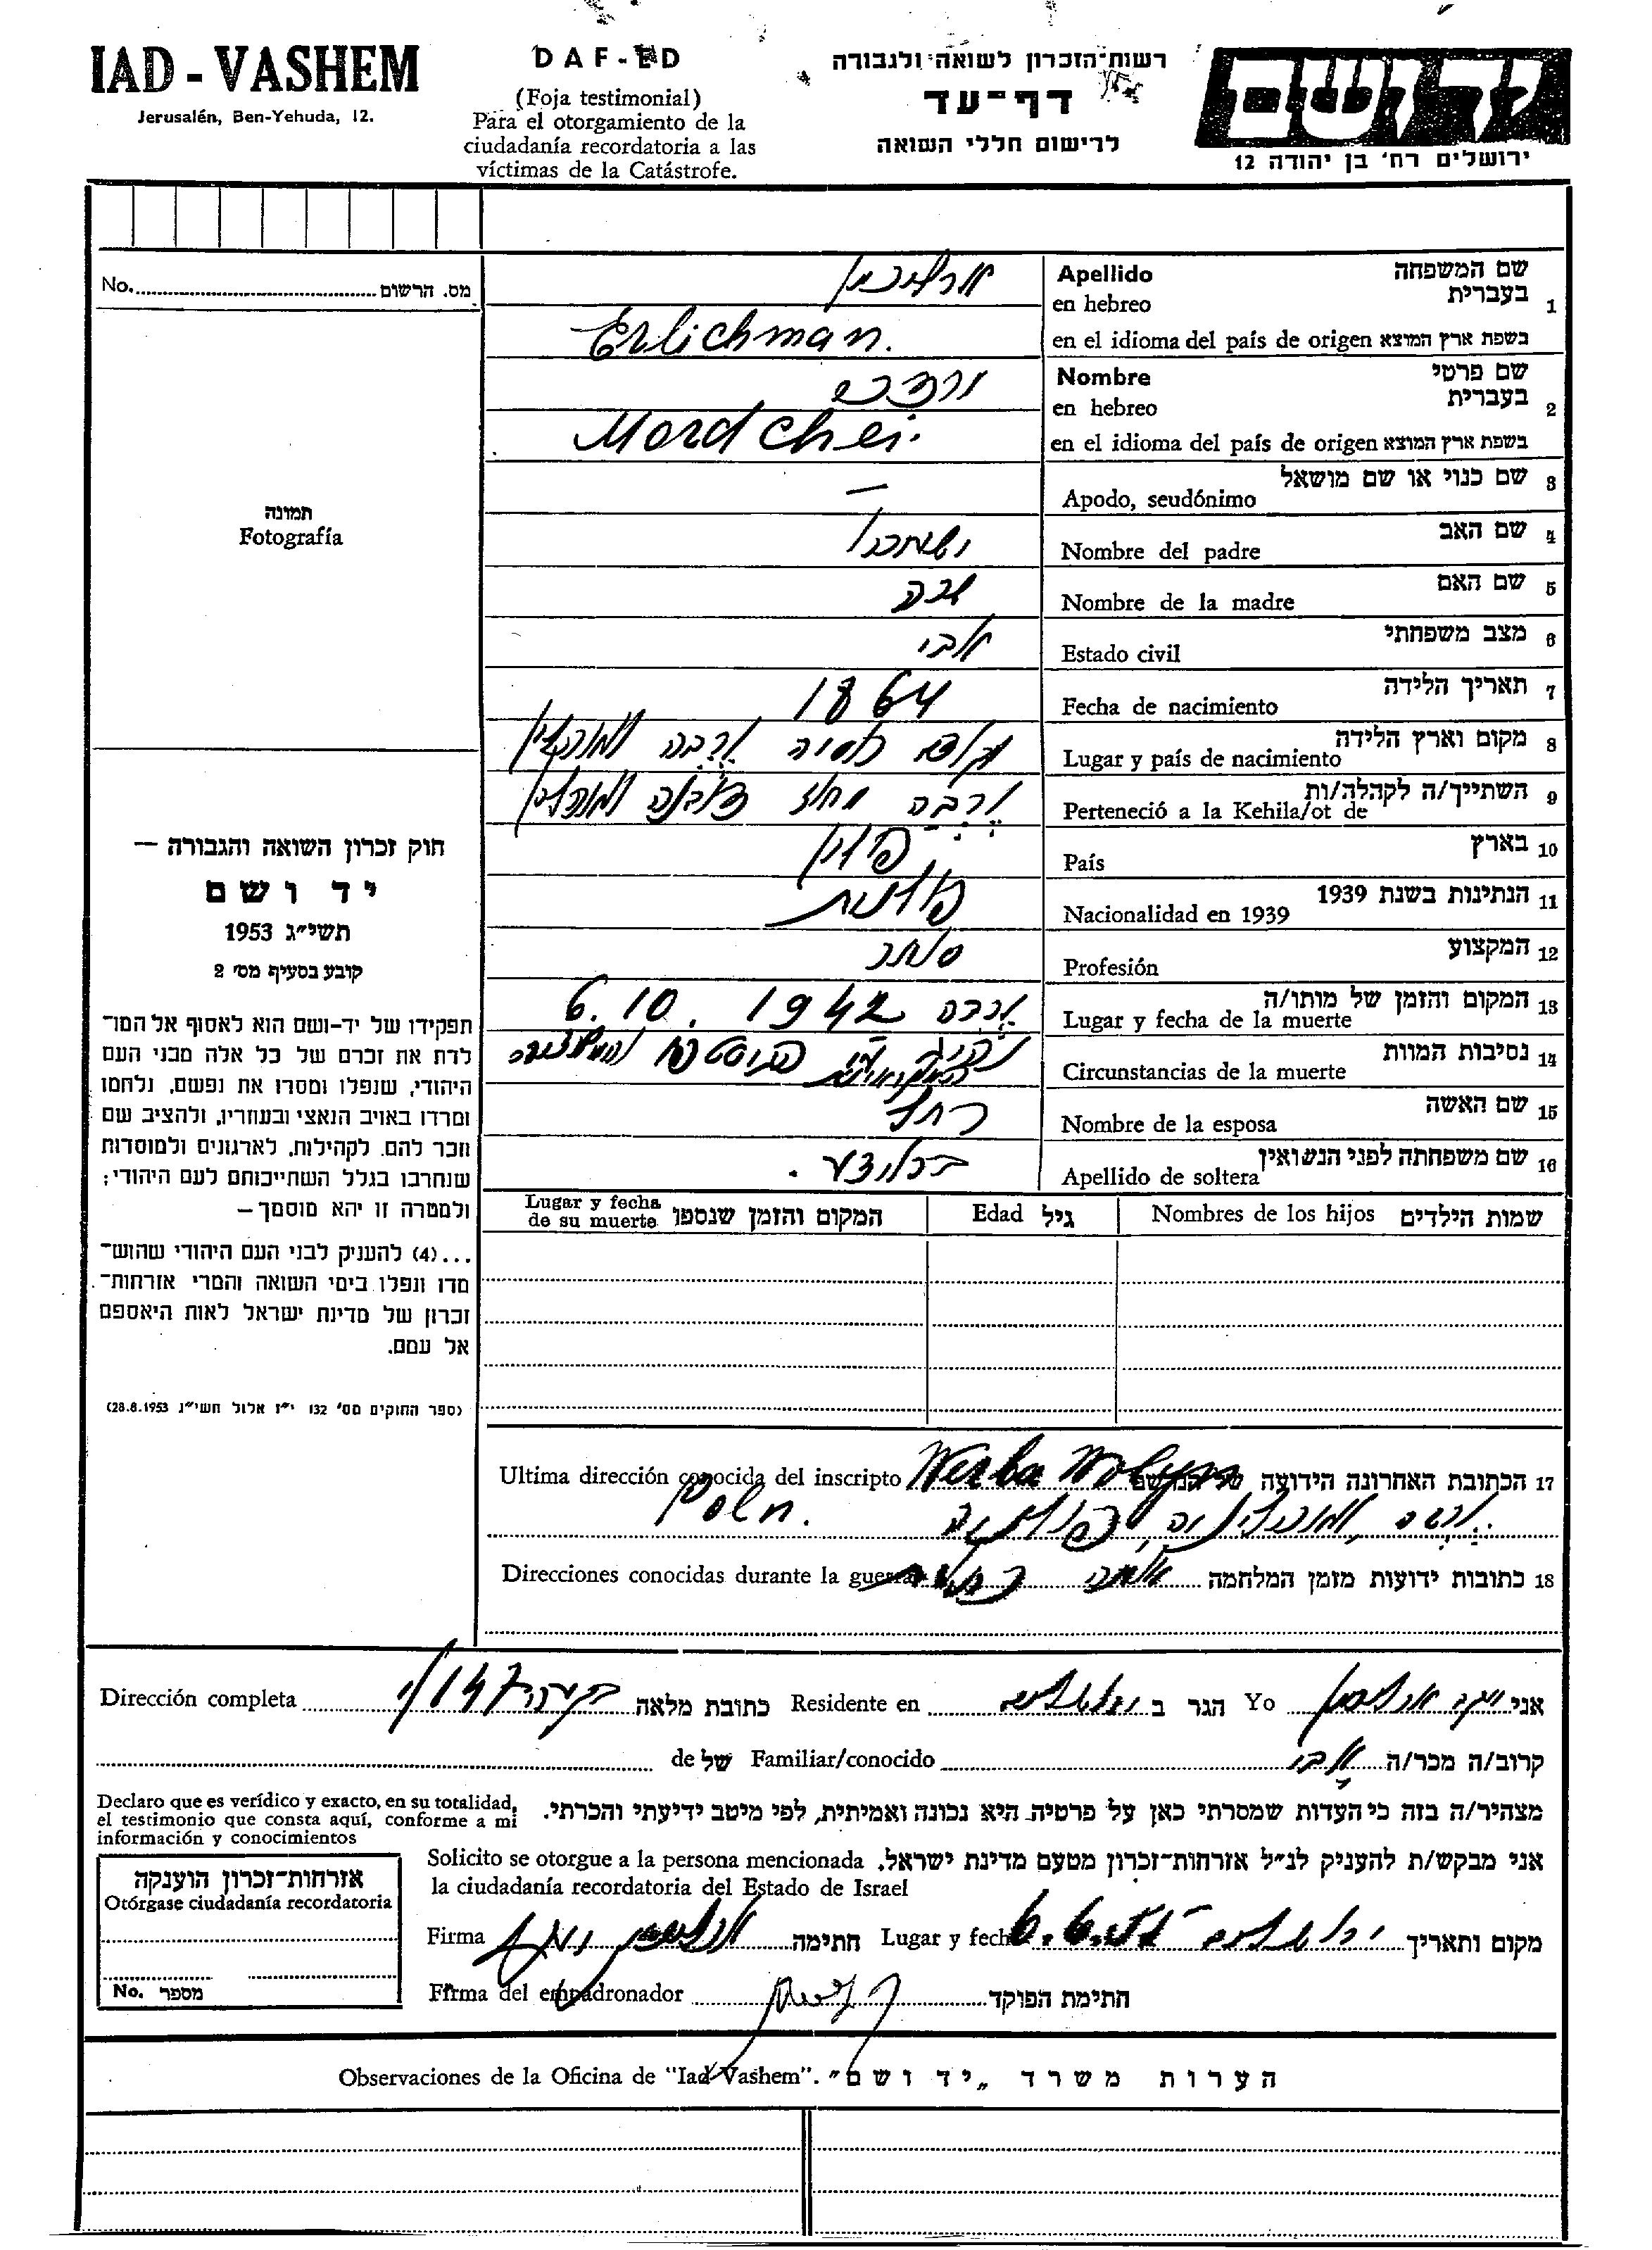 IAD - VASHEM
Jerusalén, Ben-Yehuda, 12.
DAF-ED
(Foja testimonial)
Para el otorgamiento de la
ciudadanía recordatoria a las
víctimas de la Catástrofe.
רשות־הזכרון לשואה ולגבורה
דף־עד
לרישום חללי השואה
יד ושם
ירושלים רח' בן יהודה 12
No. מס. הרשום
תמונה
Fotografía
חוק זכרון השואה והגבורה —
יד ושם
תשי״ג 1953
קובע בסעיף מס׳ 2
תפקידו של יד-ושם הוא לאסוף אל המו־
לדת את זכרם של כל אלה מבני העם
היהודי, שנפלו ומסרו את נפשם, נלחמו
ומרדו באויב הנאצי ובעוזריו, ולהציב שם
וזכר להם, לקהילות, לארגונים ולמוסדות
שנחרבו בגלל השתייכותם לעם היהודי;
ולמטרה זו יהא מוסמך—
...(4) להעניק לבני העם היהודי שהוש־
מדו ונפלו בימי השואה והמרי אזרחות־
זכרון של מדינת ישראל לאות היאספם
אל עמם.
(ספר החוקים מס׳ 132 י״ז אלול תשי״ג 28.8.1953)
1 שם המשפחה בעברית Apellido en hebreo ארליכמן
בשפת ארץ המוצא en el idioma del país de origen Erlichman.
2 שם פרטי בעברית Nombre en hebreo מרדכי
בשפת ארץ המוצא en el idioma del país de origen Mordchei.
3 שם כנוי או שם מושאל Apodo, seudónimo —
4 שם האב Nombre del padre
5 שם האם Nombre de la madre
6 מצב משפחתי Estado civil
7 תאריך הלידה Fecha de nacimiento 1864
8 מקום וארץ הלידה Lugar y país de nacimiento
9 השתייך/ה לקהלה/ות Perteneció a la Kehila/ot de
10 בארץ País פולין
11 הנתינות בשנת 1939 Nacionalidad en 1939 פולנית
12 המקצוע Profesión סוחר
13 המקום והזמן של מותו/ה Lugar y fecha de la muerte 6.10.1942
14 נסיבות המוות Circunstancias de la muerte
15 שם האשה Nombre de la esposa רחל
16 שם משפחתה לפני הנשואין Apellido de soltera
שמות הילדים Nombres de los hijos גיל Edad המקום והזמן שנספו Lugar y fecha de su muerte
17 הכתובת האחרונה הידועה של הנרשם Ultima dirección conocida del inscripto Werba Wolyn
Poln.
18 כתובות ידועות מזמן המלחמה Direcciones conocidas durante la guerra
אני Yo הגר ב Residente en ירושלים כתובת מלאה Dirección completa
קרוב/ה מכר/ה Familiar/conocido של de
מצהיר/ה בזה כי העדות שמסרתי כאן על פרטיה היא נכונה ואמיתית, לפי מיטב ידיעתי והכרתי.
Declaro que es verídico y exacto, en su totalidad,
el testimonio que consta aquí, conforme a mi
información y conocimientos
אני מבקש/ת להעניק לנ״ל אזרחות־זכרון מטעם מדינת ישראל.
Solicito se otorgue a la persona mencionada
la ciudadanía recordatoria del Estado de Israel
מקום ותאריך Lugar y fecha ירושלים חתימה Firma
חתימת הפוקד Firma del empadronador
אזרחות־זכרון הוענקה
Otórgase ciudadanía recordatoria
No. מספר
הערות משרד „יד ושם״ Observaciones de la Oficina de "Iad Vashem".